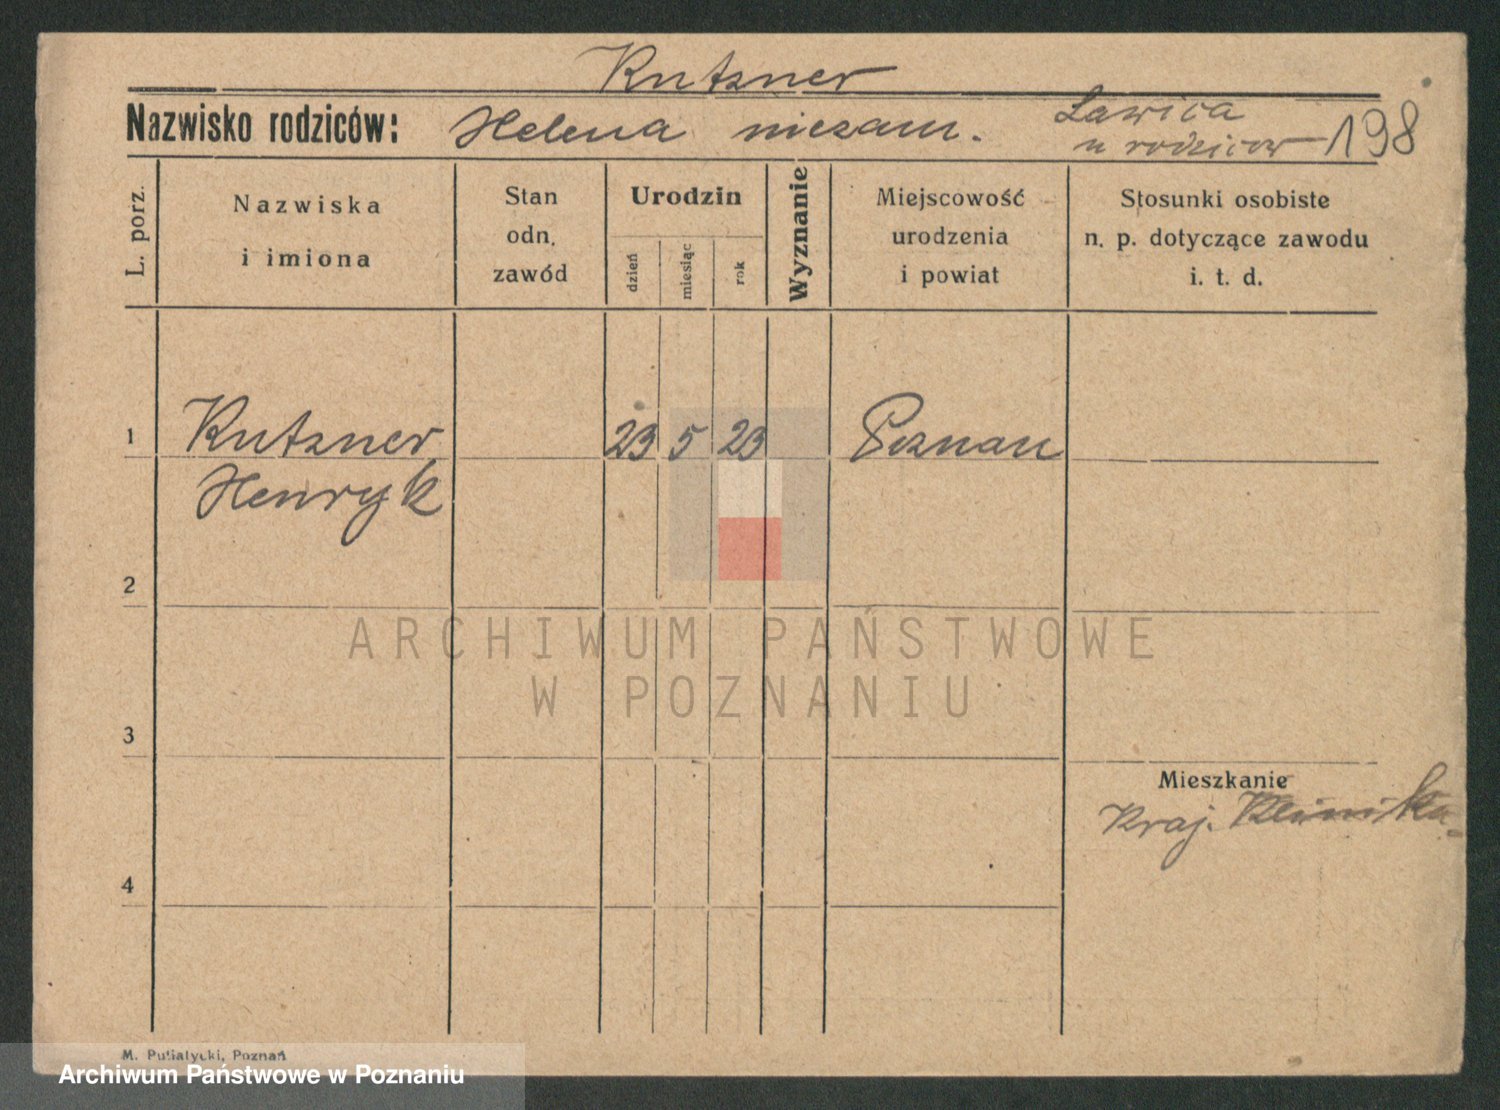 Kutzner
Nazwisko rodziców: Helena niezam. Ławica
u rodziców 198
L. porz.
Nazwiska
i imiona
Stan
odn.
zawód
Urodzin
dzień
miesiąc
rok
Wyznanie
Miejscowość
urodzenia
i powiat
Stosunki osobiste
n. p. dotyczące zawodu
i. t. d.
1 Kutzner 23 5 23 Poznan
Henryk
2
ARCHIWUM PAŃSTWOWE
W POZNANIU
3
Mieszkanie
Kraj. Klinika
4
M. Putiatycki, Poznań
Archiwum Państwowe w Poznaniu